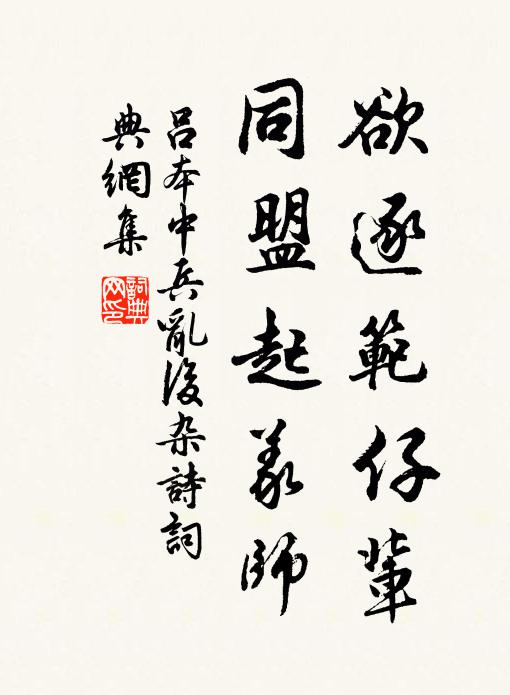 欲逐範仔輩
同盟起義師
呂本中兵亂後杂詩詞
典網集
詞典网印